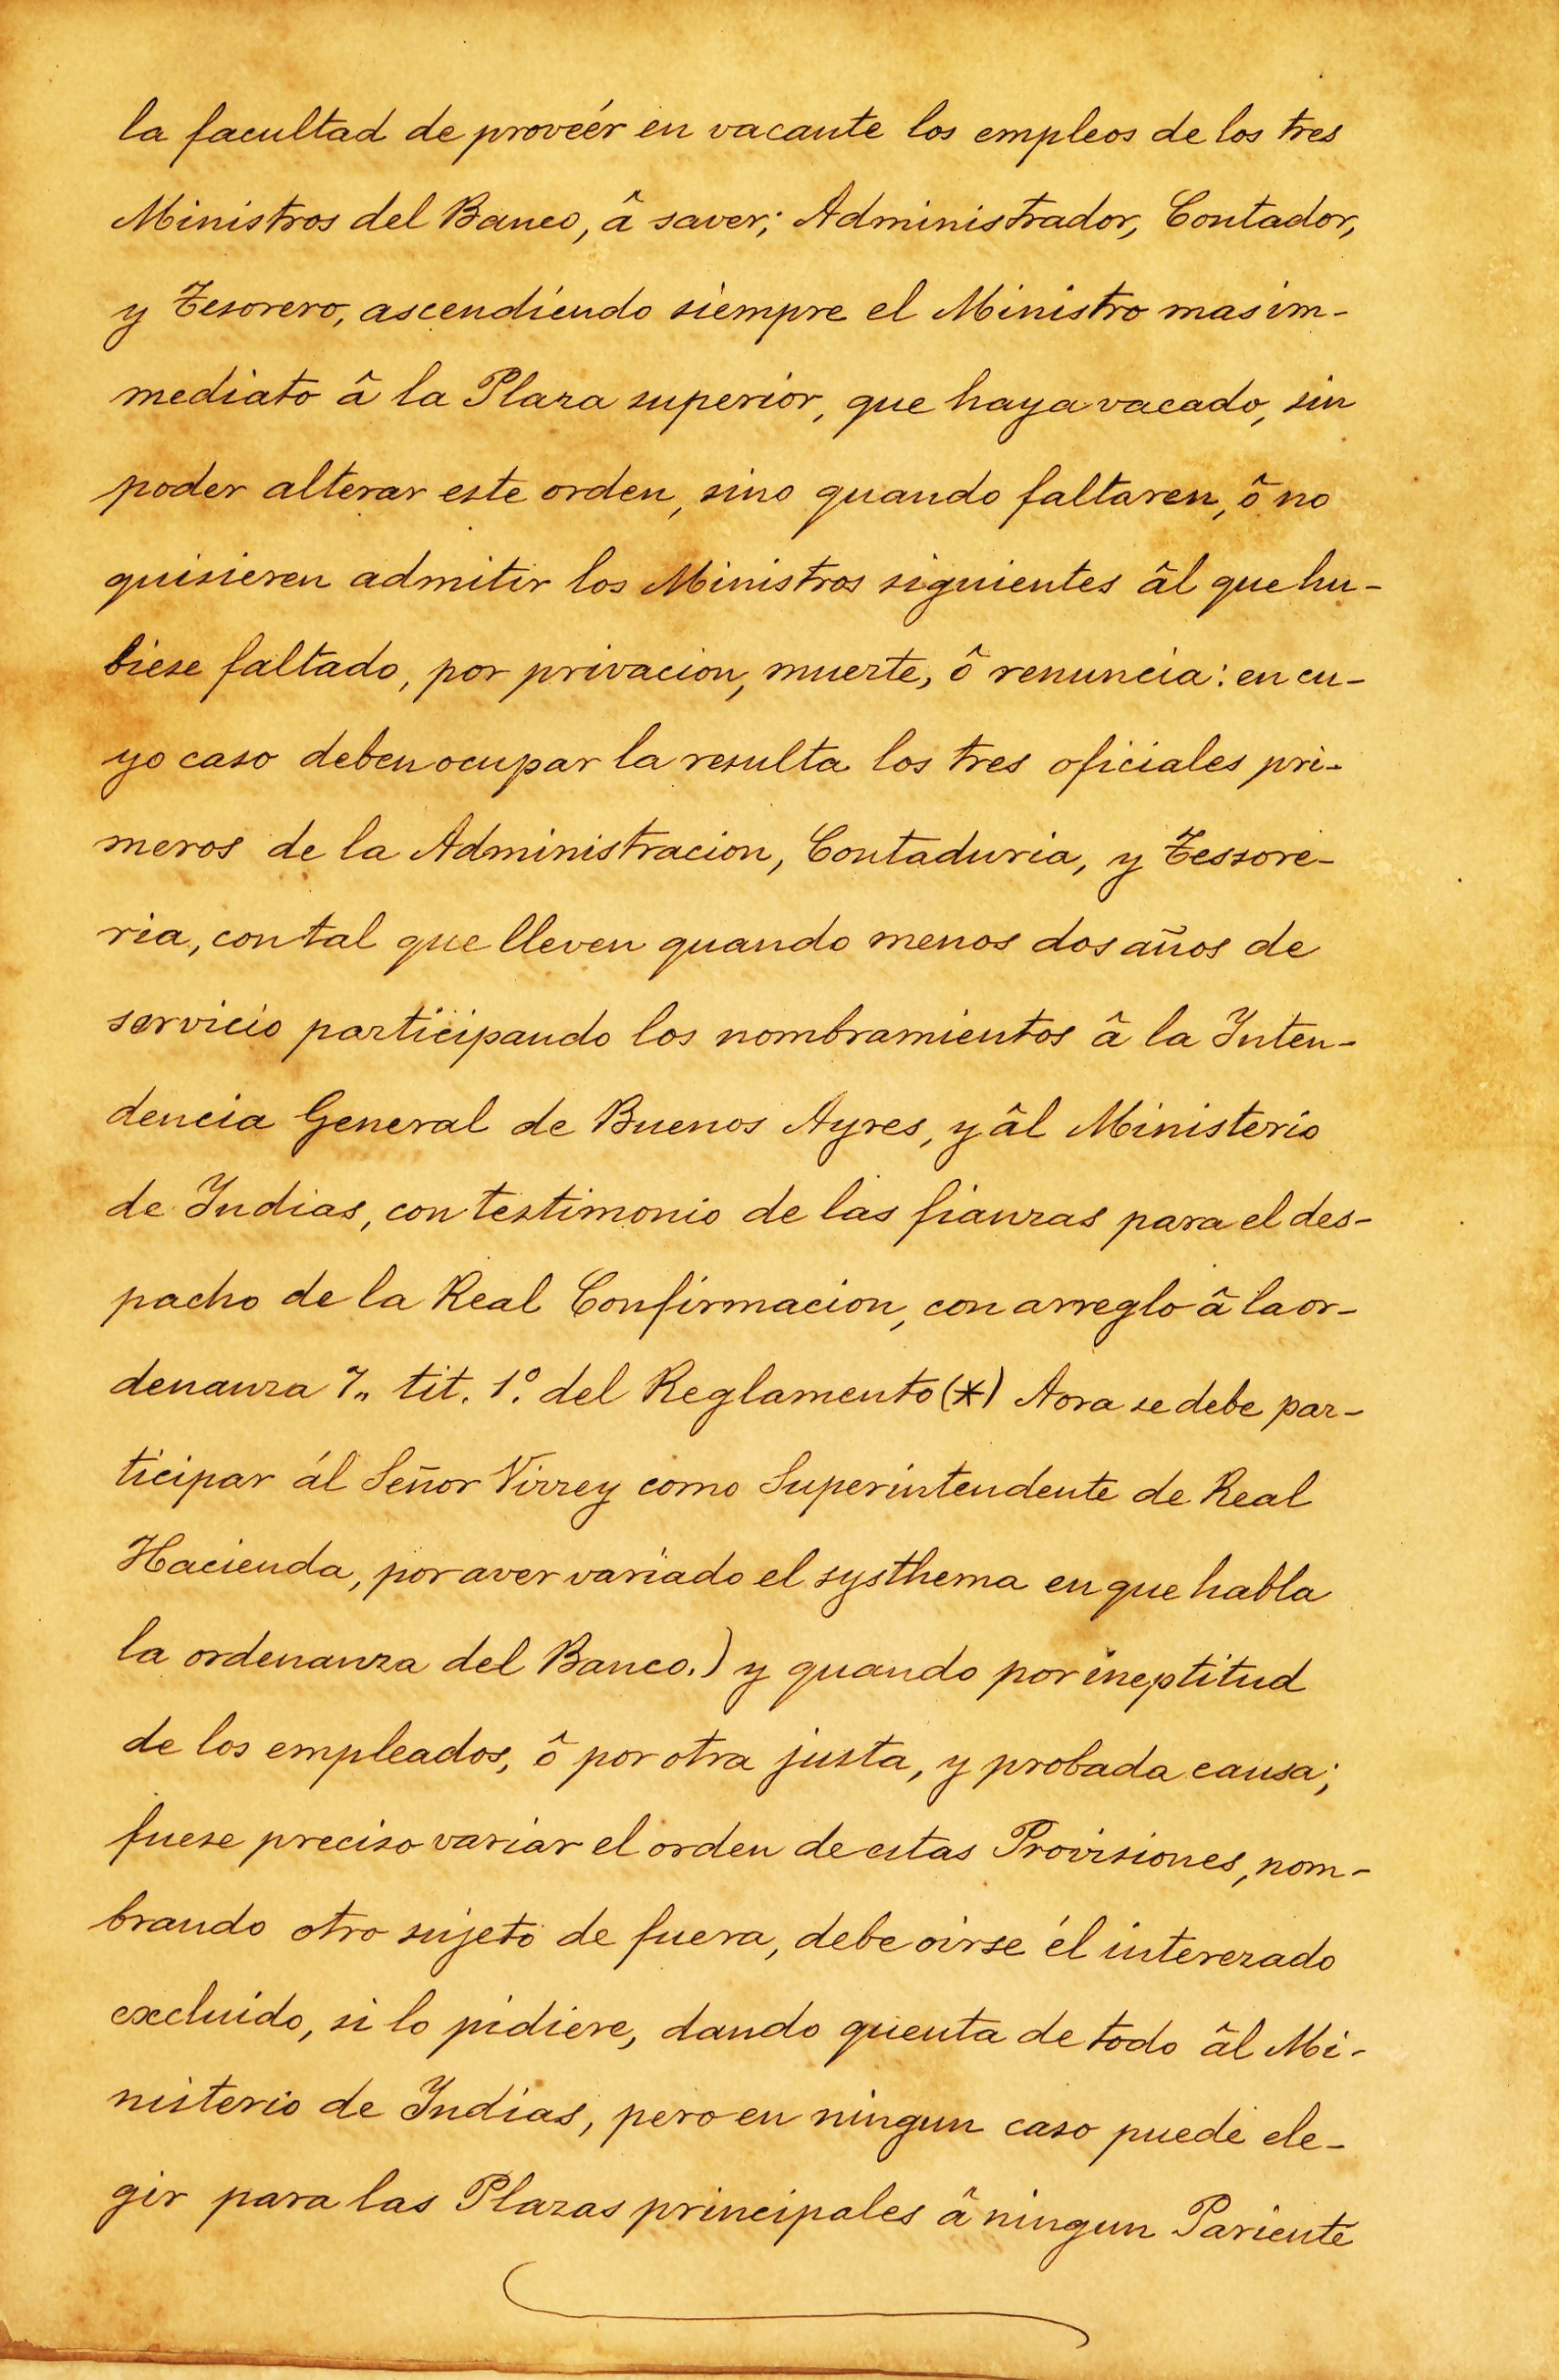 la facultad de proveér en vacante los empleos de los tres
Ministros del Banco, â saver; Administrador, Contador,
y Tesorero, ascendiendo siempre el Ministro mas im-
mediato â la Plaza superior, que haya vacado, sin
poder alterar este orden, sino quando faltaren, ô no
quisieren admitir los Ministros siguientes âl que hu-
biese faltado, por privacion, muerte, ô renuncia: en cu-
yo caso deben ocupar la resulta los tres oficiales pri-
meros de la Administracion, Contaduria, y Tessore-
ria, con tal que lleven quando menos dos años de
servicio participando los nombramientos â la Inten-
dencia General de Buenos Ayres, y âl Ministerio
de Indias, con testimonio de las fianzas para el des-
pacho de la Real Confirmacion, con arreglo â la or-
denanza 7,, tit. 1º. del Reglamento (*) Aora se debe par-
ticipar ál Señor Virrey como Superintendente de Real
Hacienda, por aver variado el systhema en que habla
la ordenanza del Banco.) y quando por ineptitud
de los empleados, ô por otra justa, y probada causa;
fuese preciso variar el orden de estas Provisiones, nom-
brando otro sujeto de fuera, debe oirse él interezado
excluido, si lo pidiere, dando quenta de todo âl Mi-
nisterio de Indias, pero en ningun caso puede ele-
gir para las Plazas principales â ningun Pariente